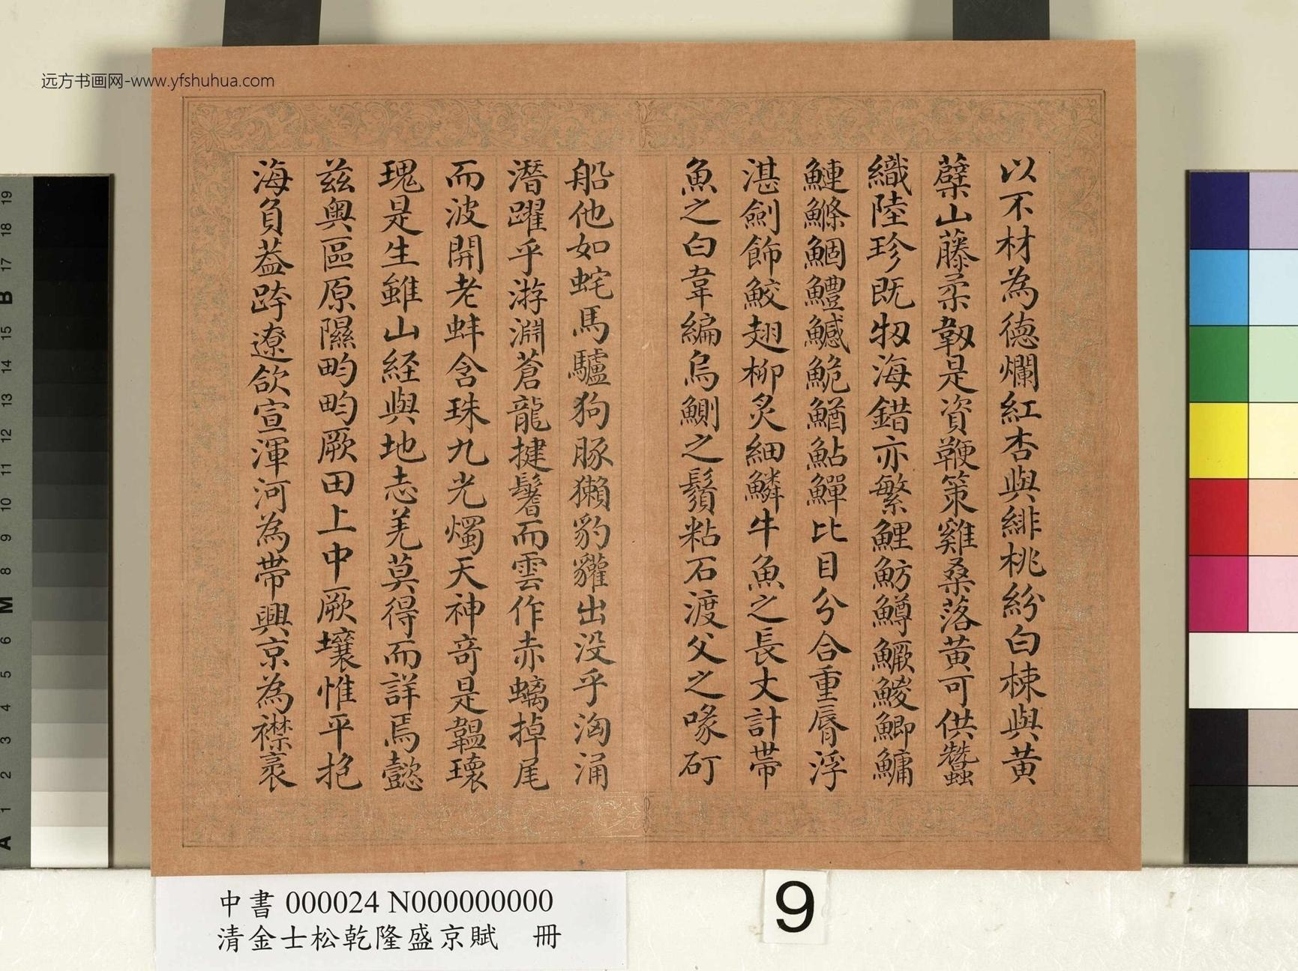 远方书画网-www.yfshuhua.com
以不材為德爛紅杏與緋桃紛白梀與黄
蘗山藤柔韌是資鞭策雞桑落黄可供蠶
織陸珍既牣海錯亦繁鯉魴鱒鱖鯪鯽鱅
鰱鰷鯝鱧鰄鮠鰌鮎鱓比目分合重脣浮
湛劍飾鮫翅柳炙細鱗牛魚之長丈計帶
魚之白韋編烏鰂之鬚粘石渡父之喙矴
船他如蛇馬驢狗豚獺豹貛出没乎洶涌
潛躍乎游淵蒼龍揵鬐而雲作赤螭掉尾
而波開老蚌含珠九光燭天神奇是韞瓌
瑰是生雖山経與地志羌莫得而詳焉懿
兹奥區原隰畇畇厥田上中厥壤惟平抱
海負葢跨遼欱宣渾河為帶興京為襟裹
中書 000024 N000000000
清金士松乾隆盛京賦 冊
9
19
18
17
B
15
14
13
12
11
10
9
8
M
6
5
4
3
2
1
A